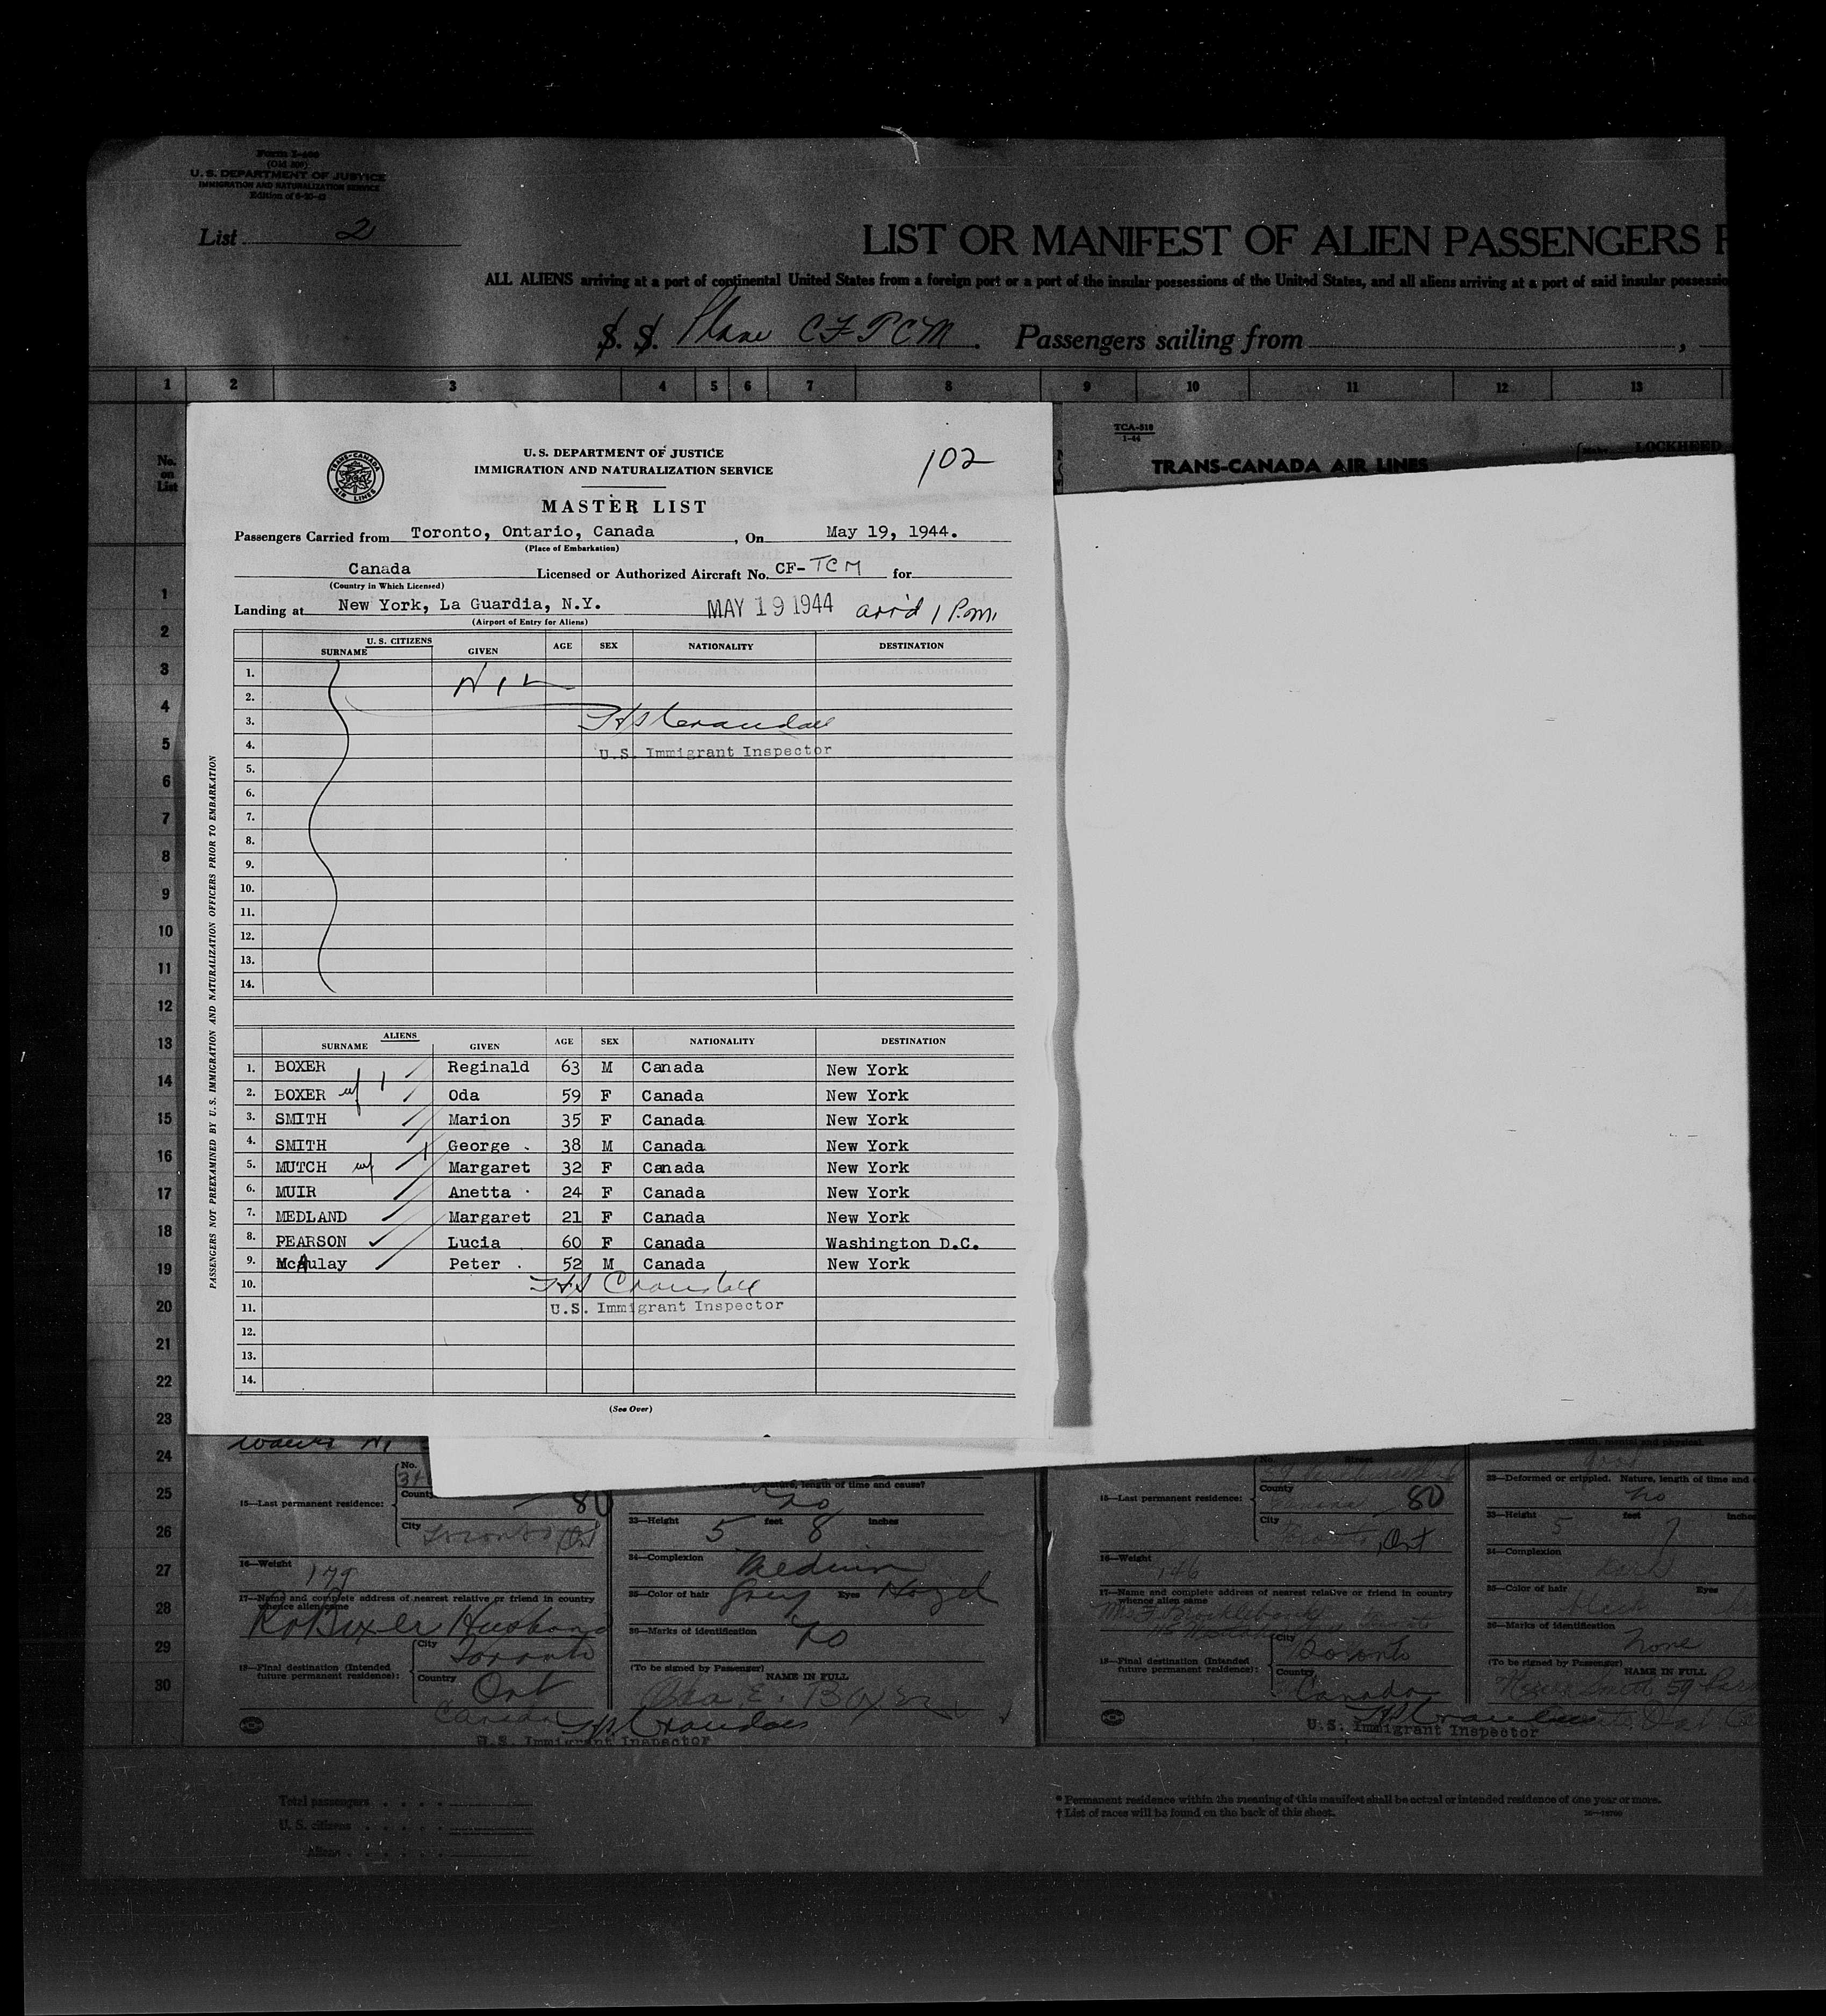 Form I-400
(Old 500)
U. S. DEPARTMENT OF JUSTICE
IMMIGRATION AND NATURALIZATION SERVICE
List 2
LIST OR MANIFEST OF ALIEN PASSENGERS F
ALL ALIENS arriving at a port of continental United States from a foreign port or a port of the insular possessions of the United States, and all aliens arriving at a port of said insular possessio
S. S. Plane CF TCM. Passengers sailing from ,
1 2 3 4 5 6 7 8 9 10 11 12 13
No. on List
TCA-518
1-44
TRANS-CANADA AIR LINES
LOCKHEED
TRANS-CANADA AIR LINES
TCA
U. S. DEPARTMENT OF JUSTICE
IMMIGRATION AND NATURALIZATION SERVICE
102
MASTER LIST
Passengers Carried from Toronto, Ontario, Canada, On May 19, 1944.
(Place of Embarkation)
Canada Licensed or Authorized Aircraft No. CF-TCM for
(Country in Which Licensed)
Landing at New York, La Guardia, N.Y. MAY 19 1944 arr'd 1 P.m.
(Airport of Entry for Aliens)
U. S. CITIZENS
SURNAME GIVEN AGE SEX NATIONALITY DESTINATION
1. NIL
2.
3. Crandall
4. U.S. Immigrant Inspector
5.
6.
7.
8.
9.
10.
11.
12.
13.
14.
ALIENS
SURNAME GIVEN AGE SEX NATIONALITY DESTINATION
1. BOXER Reginald 63 M Canada New York
2. BOXER wf 1 Oda 59 F Canada New York
3. SMITH Marion 35 F Canada New York
4. SMITH George 38 M Canada New York
5. MUTCH wf Margaret 32 F Canada New York
6. MUIR Anetta 24 F Canada New York
7. MEDLAND Margaret 21 F Canada New York
8. PEARSON Lucia 60 F Canada Washington D.C.
9. McAulay Peter 52 M Canada New York
10. Crandall
11. U.S. Immigrant Inspector
12.
13.
14.
(See Over)
PASSENGERS NOT PREEXAMINED BY U. S. IMMIGRATION AND NATURALIZATION OFFICERS PRIOR TO EMBARKATION
1
2
3
4
5
6
7
8
9
10
11
12
13
14
15
16
17
18
19
20
21
22
23
24
25
26
27
28
29
30
No.
County 80
15—Last permanent residence:
City Toronto Ont
16—Weight 179
17—Name and complete address of nearest relative or friend in country whence alien came
R Boxer Husband
City Toronto
18—Final destination (Intended future permanent residence):
Country Ont
Canada
Crandall
U.S. Immigrant Inspector
length of time and cause?
no
33—Height 5 feet 8 inches
34—Complexion Medium
35—Color of hair Grey Eyes Hazel
36—Marks of identification no
(To be signed by Passenger) NAME IN FULL
Oda E. Boxer
No. Street
15—Last permanent residence:
County Canada 80
City Toronto, Ont
16—Weight 146
17—Name and complete address of nearest relative or friend in country whence alien came
City Toronto
18—Final destination (Intended future permanent residence):
Country Canada
Crandall
U.S. Immigrant Inspector
32—Deformed or crippled. Nature, length of time and
no
33—Height 5 feet 7 inches
34—Complexion
35—Color of hair black Eyes
36—Marks of identification None
(To be signed by Passenger) NAME IN FULL
Total passengers
U. S. citizens
Aliens
* Permanent residence within the meaning of this manifest shall be actual or intended residence of one year or more.
† List of races will be found on the back of this sheet.